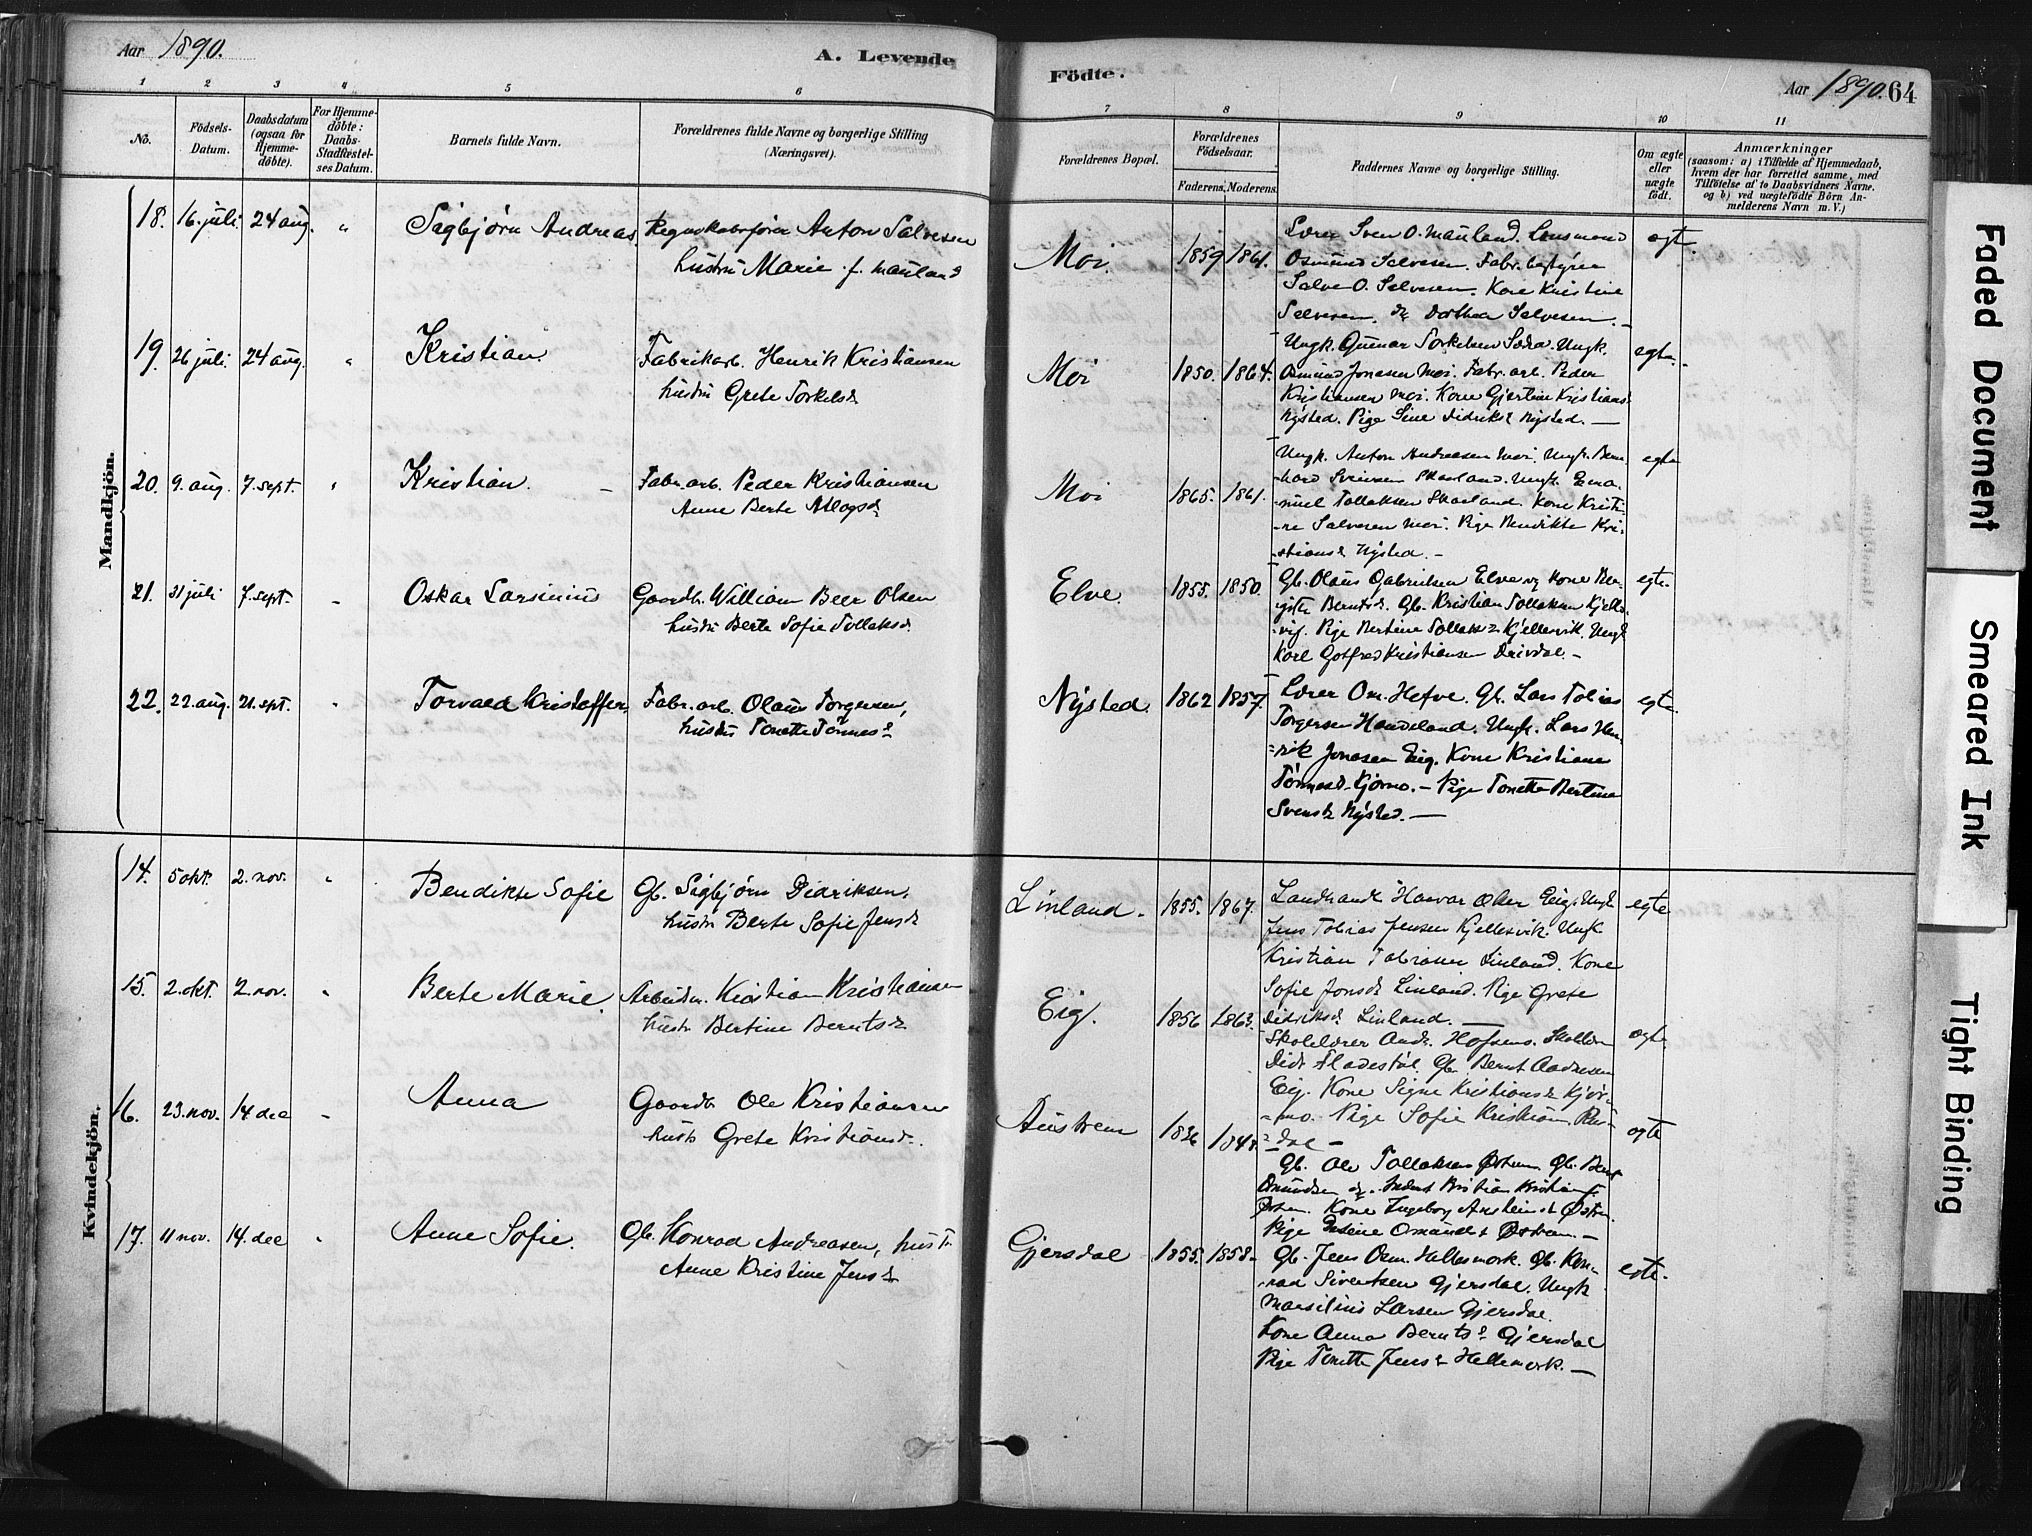 Aar 1890.
A. Levende
Födte.
Aar 1890. 64
1 2 3 4 5 6 7 8 9 10 11
No.
Födsels-
Datum.
Daabsdatum
(ogsaa for
Hjemme-
döbte).
For Hjemme-
döbte:
Daabs-
Stadfæstel-
ses Datum.
Barnets fulde Navn.
Forældrenes fulde Navne og borgerlige Stilling
(Næringsvei).
Forældrenes Bopæl.
Forældrenes
Födselsaar.
Faderens. Moderens.
Faddernes Navne og borgerlige Stilling.
Om ægte
eller
uægte
födt.
Anmærkninger
(saasom: a) i Tilfælde af Hjemmedaab,
hvem der har forrettet samme, med
Tilföielse af to Daabsvidners Navne.
og b) ved uægtefödte Börn An-
melderens Navn m. V.)
Mandkjön.
18. 16. juli 24 aug. " Sigbjørn Andreas Regnskabsfører Anton Salvesen
hustru Marie f. Mauland
Moi. 1859 1861.
Lærer Sven O. Mauland. Lensmand
Osmund Salvesen. Fabr. bestyrer
Salve O. Salvesen. Kone Kristine
Salvesen. Dorthea Salvesen.
egte
19. 26 juli. 24 aug. " Kristian. Fabrikarb. Henrik Kristiansen
hustru Grete Torkelsd.
Moi 1850. 1864.
Ungk. Gunnar Torkelsen Ungk.
Osmund Jonasen Moi. Fabr. arb. Peder
Kristiansen Moi. Kone Gjertine Kristians.
Nysted. Pige Sine Didriksd. Nysted. —
egte.
20. 9. aug. 7. sept. " Kristian. Fabr. arb. Peder Kristiansen
Anne Berte
Moi 1865. 1861.
Ungk. Anton Andreasen Moi. Ungk. Bern-
hard Svensen Skarland. Ungk. Ema-
nuel Tollaksen Skarland. Kone Kristi-
ne Salvesen Moi. Pige Bendikte Kri-
stiansd. Nysted. —
egte
21. 31 juli 7. sept. " Oskar Larsinius Gaardb. William Beer Olsen
hustru Berte Sofie Tollaksd.
Elve. 1855. 1850.
Gb. Olaus Gabrielsen Elve og kone
Berntsd. Gb. Kristian Tollaksen Kjelles-
vig. Pige Bertine Tollaksd. Kjellesvik. Ungk.
Karl Gotfred Kristiansen Drivdal. —
egte.
22. 22. aug. 21. spt. " Torvald Kristoffer, Fabr. arb. Olaus Torgersen,
hustru Tonette Tønnesd.
Nysted. 1862 1857.
Lærer Om. Hefve. Gb. Lars Tobias
Torgersen Haneland. Ungk. Lars Hen-
rik Jonasen Eig. Kone Kristiane
Tønnesd. Kjørmo. — Pige Tonette Bertine
Svensd. Nysted. —
egte.
Kvindekjön.
14. 5 okt. 2. nov. " Bendikte Sofie Gb. Sigbjørn Didriksen.
hustr. Berte Sofie Jensd.
Linland. 1855. 1867.
Landhandl. Haavar Eig. Ungk.
Jens Tobias Jensen Kjellesvik. Ungk.
Kristian Tobiasen Linland. Kone
Sofie Jonsd. Linland. Pige Grete
Didriksd. Linland. —
egte
15. 2. okt. 2. nov. " Berte Marie. Arbeidsm. Kristian Kristiansen
hustr. Bertine Berntsd.
Eig. 1856 1863.
Skolelærer Andr. Hofsmo.
Didr. Fladestøl. Gb. Bernt Andresen
Eig. Kone Signe Kristiansd. Kjør-
mo. Pige Sofie Kristians.
dal —
egte
16. 23. nov. 14 dec " Anna Gaardb. Ole Kristiansen
hustr. Grete Kristiansd.
Austrem 1836 184
Gb. Ole Tollaksen Østrem. Gb. Bernt
Omundsen Kristian Kristians
Østrem. Kone Ingeborg Østrem.
Pige Omundsd. Østrem. —
egte
17. 11 nov. 14. dec " Anne Sofie. Gb. Konrad Andreasen, hustr.
Anne Kristine Jensd.
Gjersdal 1855. 1858.
Gb. Jens Osm. Hellemork. Gb. Kon-
rad Sivertsen Gjersdal. Ungk
Marsilius Larsen Gjersdal.
Kone Anna Berntsd. Gjersdal
Pige Tonette Jensd. Hellemork. —
egte.
Faded Document
Smeared Ink
Tight Binding